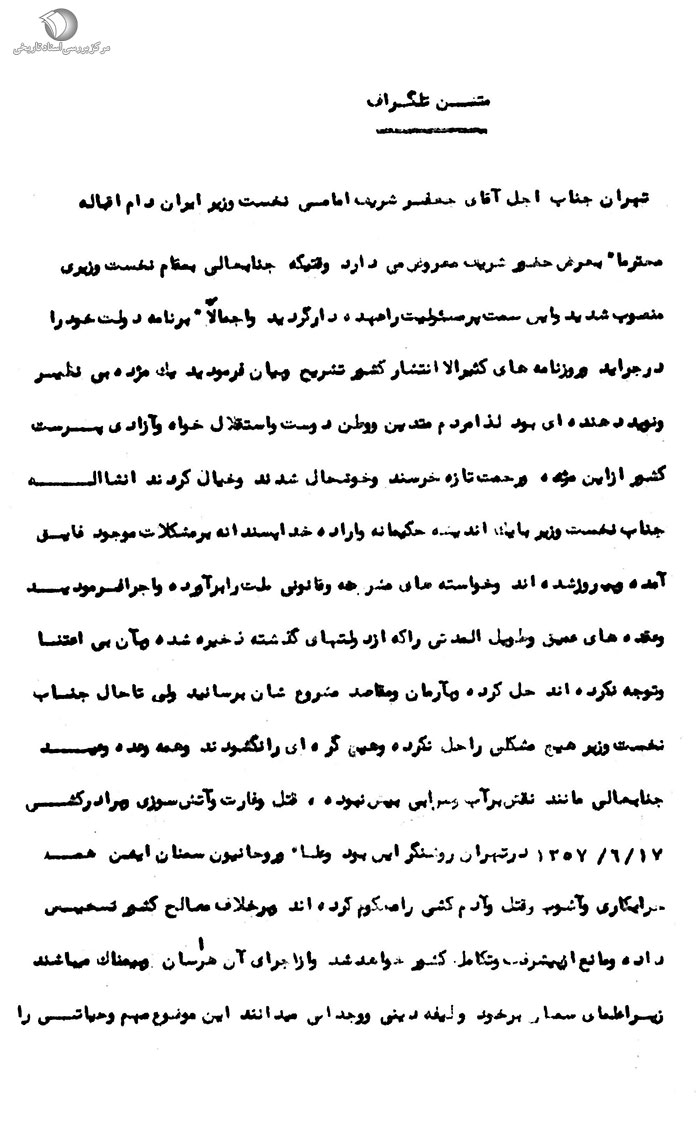 مرکز بررسی اسناد تاریخی
متن تلگراف
تهران جناب اجل آقای جعفر شریف امامی نخست وزیر ایران دام اقباله
محترما" بعرض حضور شریف معروض می دارد وقتیکه جنابعالی بمقام نخست وزیری
منصوب شدید واین سمت پرمسئولیت راعهده دارگردید واجمالاً" برنامه دولت خودرا
درجراید وروزنامه های کثیرالا انتشار کشور تشریح وبیان فرمودید یك مژده بی نظیر
ونوید دهنده ای بود لذامردم متدین ووطن دوست واستقلال خواه وآزادی پرست
کشور ازاین مژده ورحمت تازه خرسند وخوشحال شدند وخیال کردند انشااله
جناب نخست وزیر بایك اندیشه حکیمانه واراده خداپسندانه برمشکلات موجود فایق
آمده وپیروزشده اند وخواسته های مشروعه وقانونی ملت رابرآورده واجرافرمودید
وعقده های عمیق وطویل المدتی راکه ازدولتهای گذشته ذخیره شده وبآن بی اعتنا
وتوجه نکرده اند حل کرده وبآرمان ومقاصد مشروع شان برسانید ولی تاحال جناب
نخست وزیر هیچ مشکلی راحل نکرده وهیچ گره ای رانگشودند وهمه وعده وعید
جنابعالی مانند نقش برآب وسرابی بیش نبوده ، قتل وغارت وآتش سوزی وبرادرکشی
۱۳۵۷/۶/۱۷ درتهران روشنگر این بود وعلماء وروحانیون سمنان این همه
خرابکاری وآشوب وقتل وآدم کشی رامحکوم کرده اند وبرخلاف مصالح کشور تشخیص
داده ومانع ازپیشرفت وتکامل کشور خواهدشد وازاجرای آن هراسان وبیمناك میباشند
زیراعلمای سمنان برخود وظیفه دینی ووجدانی میدانند این موضوع مهم وحیاتی را